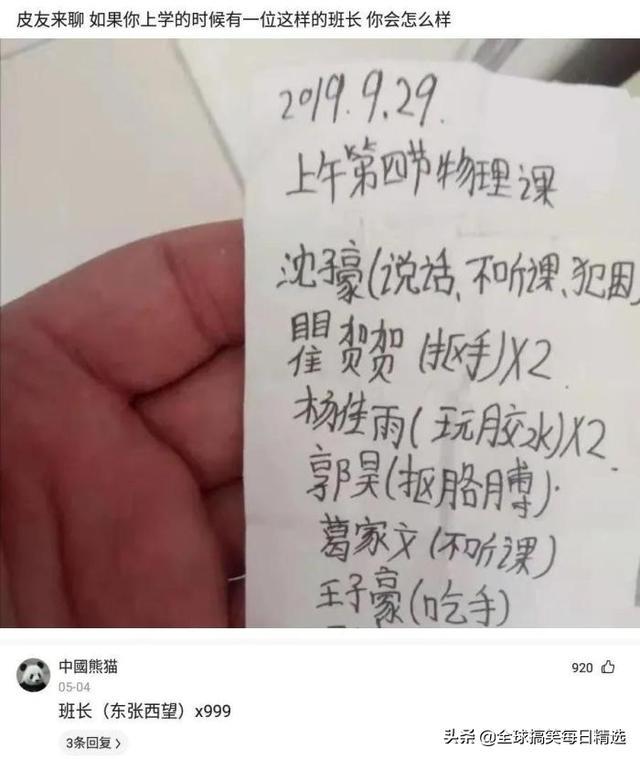 皮友来聊 如果你上学的时候有一位这样的班长 你会怎么样
2019.9.29.
上午第四节物理课
沈子豪(说话、不听课、犯困)
瞿贺贺(抠手)X2
杨佳雨(玩胶水)X2.
郭昊(抠胳膊).
葛家文(不听课)
王子豪(吃手)
中國熊猫
920
05-04
班长（东张西望）x999
3条回复 >
头条 @全球搞笑每日精选